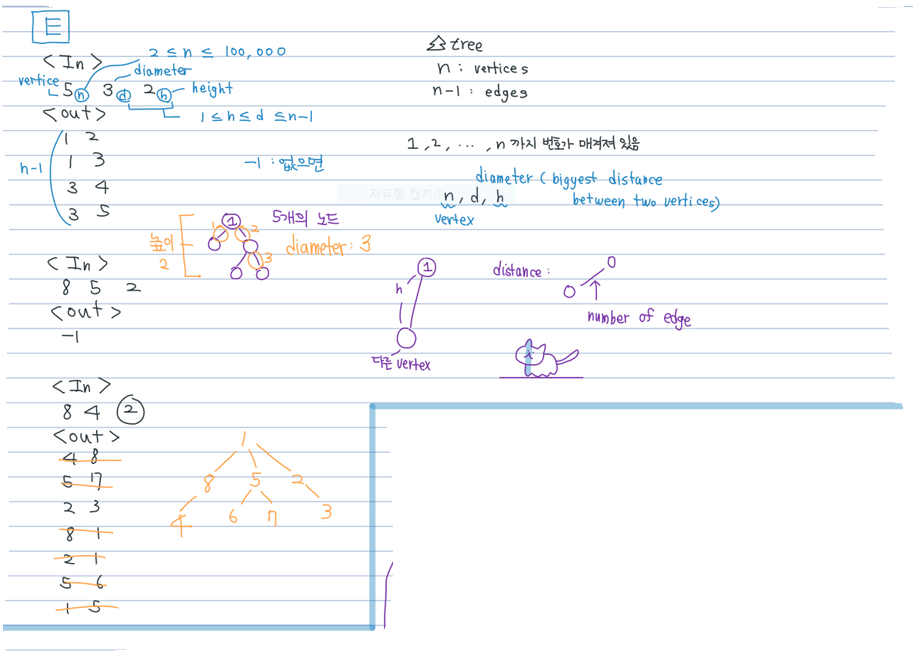 E
<In>
2 ≤ n ≤ 100,000
diameter
vertice
5 n 3 d 2 h height
<out>
1 ≤ h ≤ d ≤ n-1
1 2
1 3
3 4
3 5
h-1
-1 : 없으면
tree
n : vertices
n-1 : edges
1, 2, ..., n 까지 번호가 매겨져 있음
diameter (biggest distance
between two vertices)
n, d, h
vertex
높이
2
1
1
2
3
5개의 노드
diameter: 3
<In>
8 5 2
<out>
-1
1
h
다른 vertex
distance :
number of edge
<In>
8 4 2
<out>
4 8
5 7
2 3
8 1
2 1
5 6
1 5
1
8 5 2
4 6 7 3